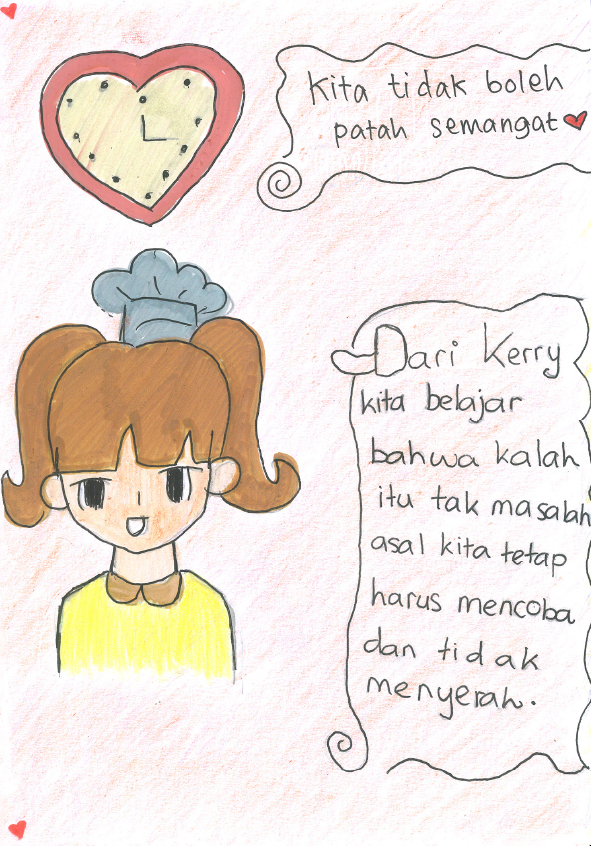 Kita tidak boleh
patah semangat
Dari Kerry
kita belajar
bahwa kalah
itu tak masalah
asal kita tetap
harus mencoba
dan tidak
menyerah.